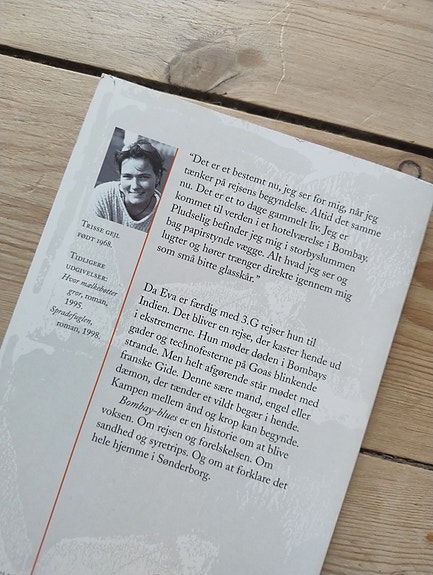 TRISSE GEJL
FØDT 1968.
TIDLIGERE
UDGIVELSER:
Hvor mælkebøtter
gror, roman,
1995.
Spradefuglen,
roman, 1998.
"Det er et bestemt nu, jeg ser for mig, når jeg
tænker på rejsens begyndelse. Altid det samme
nu. Det er et to dage gammelt liv. Jeg er
kommet til verden i et hotelværelse i Bombay.
Pludselig befinder jeg mig i storbyslummen
bag papirstynde vægge. Alt hvad jeg ser og
lugter og hører trænger direkte igennem mig
som små bitte glasskår."
Da Eva er færdig med 3.G rejser hun til
Indien. Det bliver en rejse, der kaster hende ud
i ekstremerne. Hun møder døden i Bombays
gader og technofesterne på Goas blinkende
strande. Men helt afgørende står mødet med
franske Gide. Denne sære mand, engel eller
dæmon, der tænder et vildt begær i hende.
Kampen mellem ånd og krop kan begynde.
Bombay-blues er en historie om at blive
voksen. Om rejsen og forelskelsen. Om
sandhed og syretrips. Og om at forklare det
hele hjemme i Sønderborg.